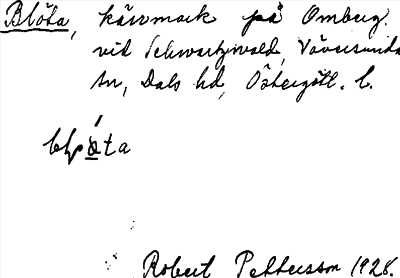 Blöta, kärrmark på Omberg
vid Schwartzwald, Väversunda
sn, Dals hd, Östergötl. l.
Robert Pettersson 1928.